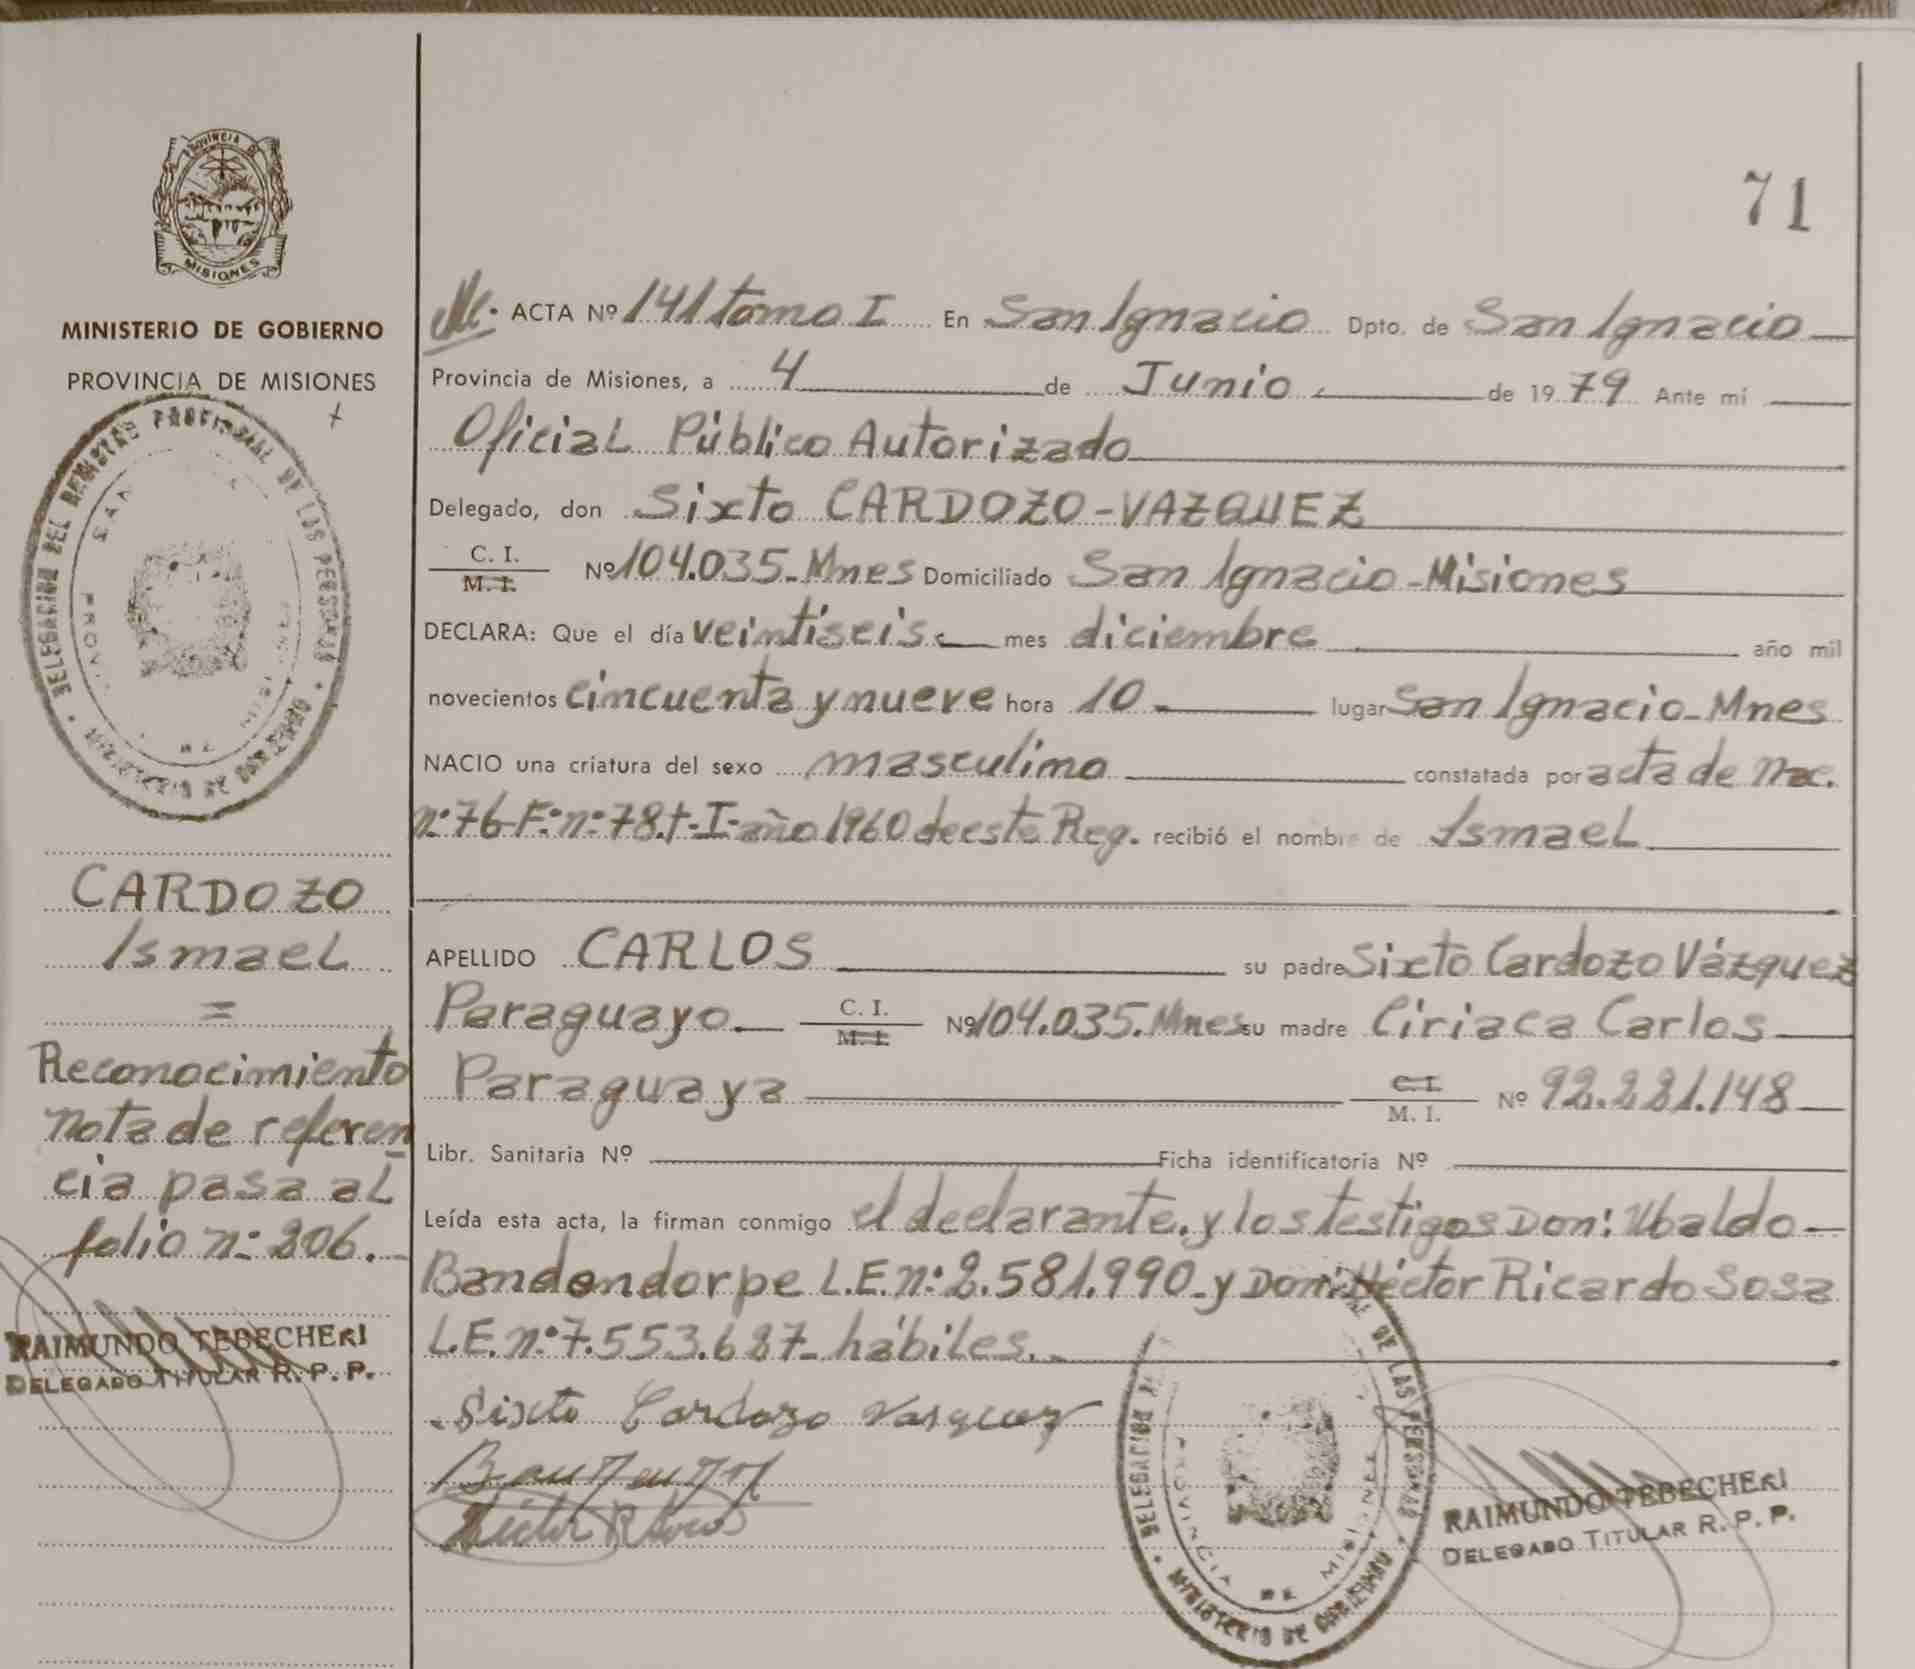 PROVINCIA DE
MISIONES
MINISTERIO DE GOBIERNO
PROVINCIA DE MISIONES
DELEGACION DEL REGISTRO PROVINCIAL DE LAS PERSONAS
MINISTERIO DE GOBIERNO
CARDOZO
Ismael
=
Reconocimiento
nota de referen
cia pasa al
folio nº 206.
RAIMUNDO TEBECHERI
DELEGADO TITULAR R. P. P.
71
ACTA Nº 141 tomo I En San Ignacio Dpto. de San Ignacio
Provincia de Misiones, a 4 de Junio de 1979 Ante mí
Oficial Público Autorizado
Delegado, don Sixto CARDOZO-VAZQUEZ
C. I.
M. I.
Nº 104.035-Mnes Domiciliado San Ignacio-Misiones
DECLARA: Que el día veintiseis mes diciembre año mil
novecientos cincuenta y nueve hora 10 lugar San Ignacio-Mnes
NACIO una criatura del sexo masculino constatada por acta de nac.
nº 76-Fº nº 78.t-I-año 1960 de este Reg. recibió el nombre de Ismael
APELLIDO CARLOS su padre Sixto Cardozo Vázquez
Paraguayo C. I. M. I. Nº 104.035.Mnes su madre Ciriaca Carlos
Paraguaya C. I. M. I. Nº 92.221.148
Libr. Sanitaria Nº Ficha identificatoria Nº
Leída esta acta, la firman conmigo el declarante. y los testigos Don: Ubaldo
Bandendorpe L.E.nº 2.581.990-y Don: Héctor Ricardo Sosa
L.E.nº 7.553.687-hábiles.
Sixto Cardozo Vasquez
DE LAS PERSONAS
PROVINCIA DE MISIONES
MINISTERIO DE GOBIERNO
RAIMUNDO TEBECHERI
DELEGADO TITULAR R. P. P.